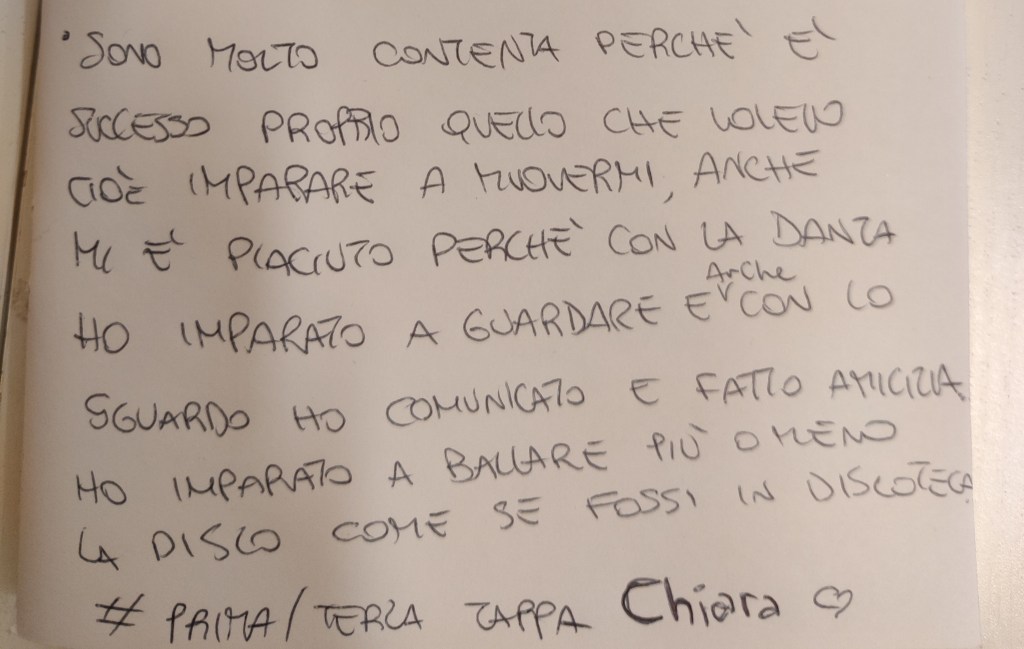 • SONO MOLTO CONTENTA PERCHE' E'
SUCCESSO PROPRIO QUELLO CHE VOLEVO
CIOÈ IMPARARE A MUOVERMI, ANCHE
MI E' PIACIUTO PERCHE' CON LA DANZA
Anche
HO IMPARATO A GUARDARE E CON LO
SGUARDO HO COMUNICATO E FATTO AMICIZIA
HO IMPARATO A BALLARE PIÙ O MENO
LA DISCO COME SE FOSSI IN DISCOTECA
# PRIMA/TERZA TAPPA Chiara ♡